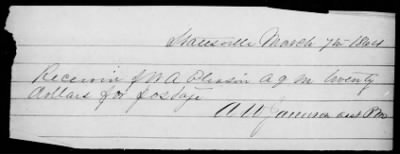 Statesville March 7th 1864
Receivd of W A Eliason A Q M twenty
dollars for postage
A W Jameson asst P M